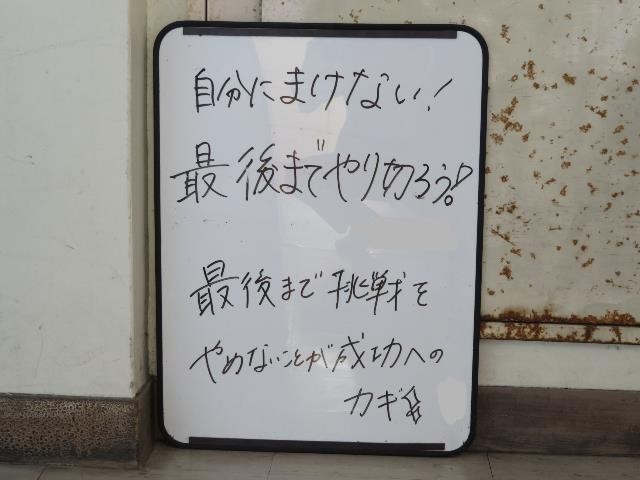 自分にまけない!
最後までやり切ろう!
最後まで挑戦を
やめないことが成功への
カギ☆